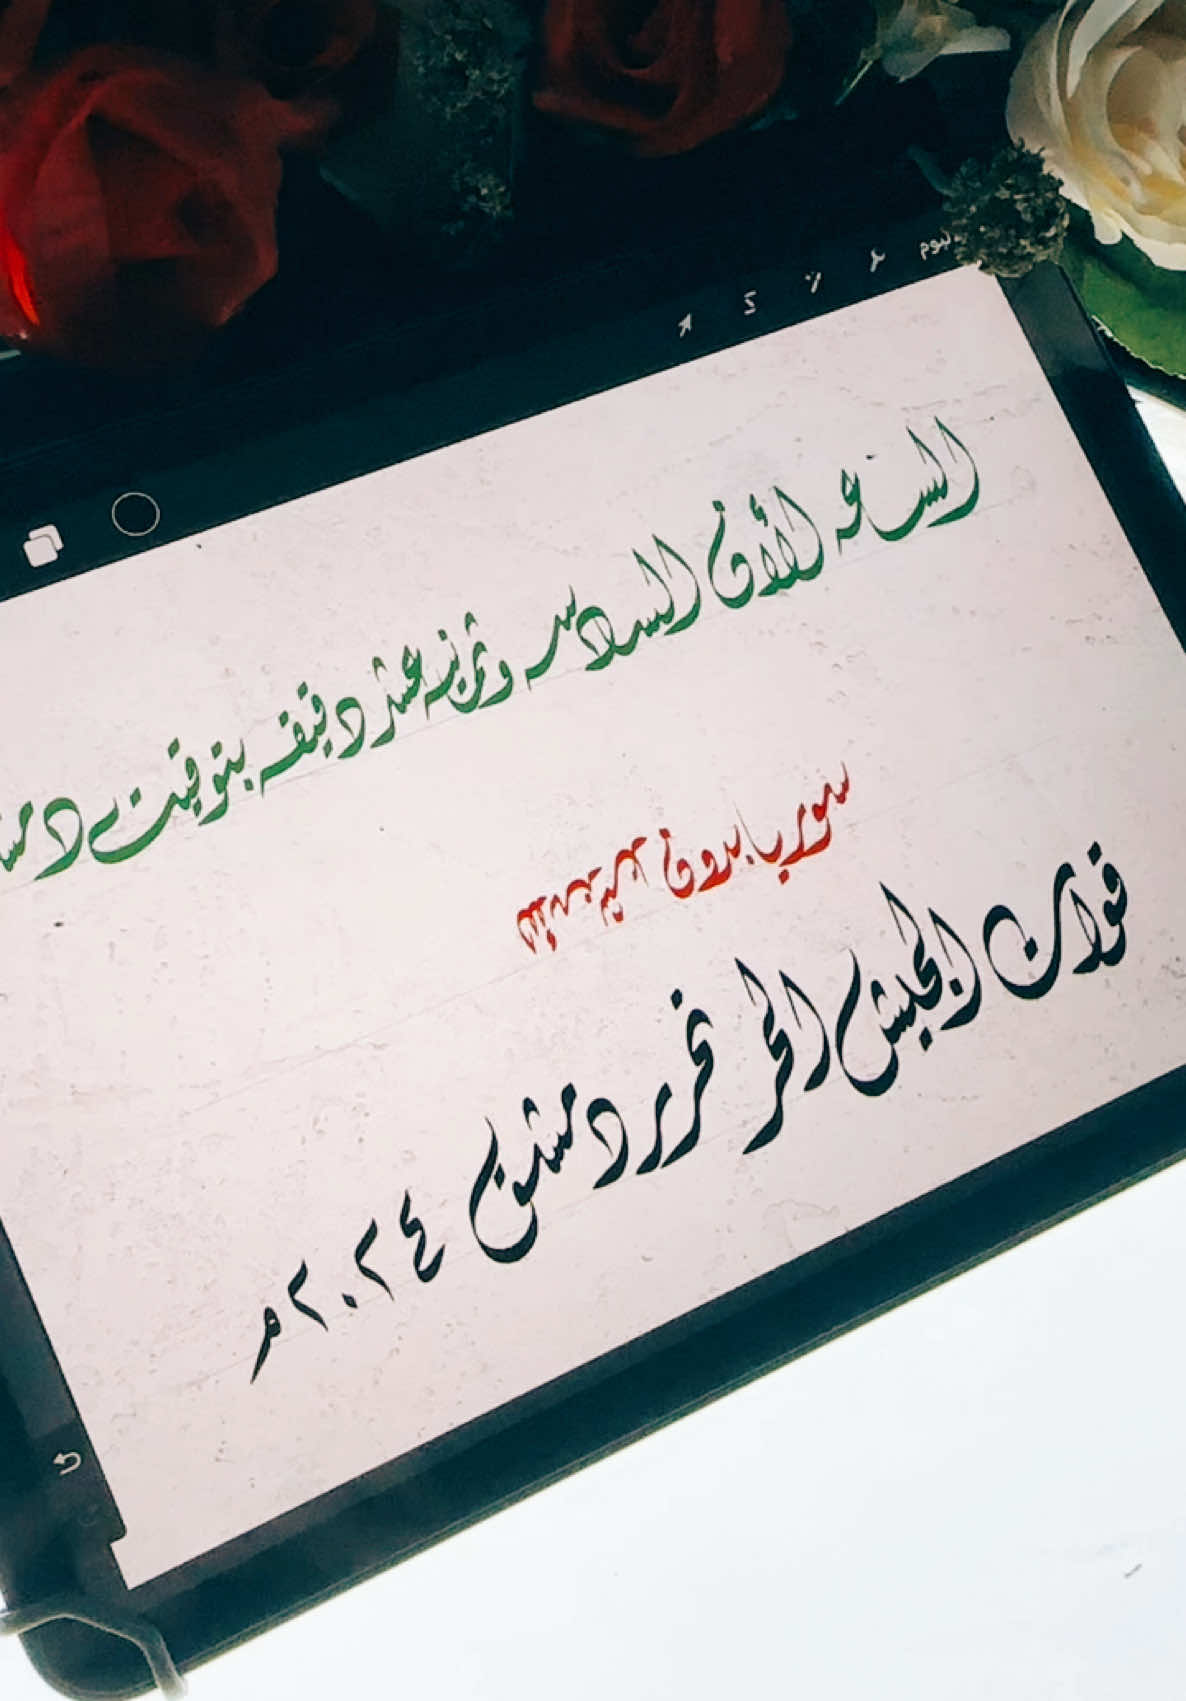 الساعه الأان السادسه وثمانيه عشر دقيقه بتوقيت
سوريا بدون
قوات الجيش الحر تحرير دمشق ٢٠٢٤م